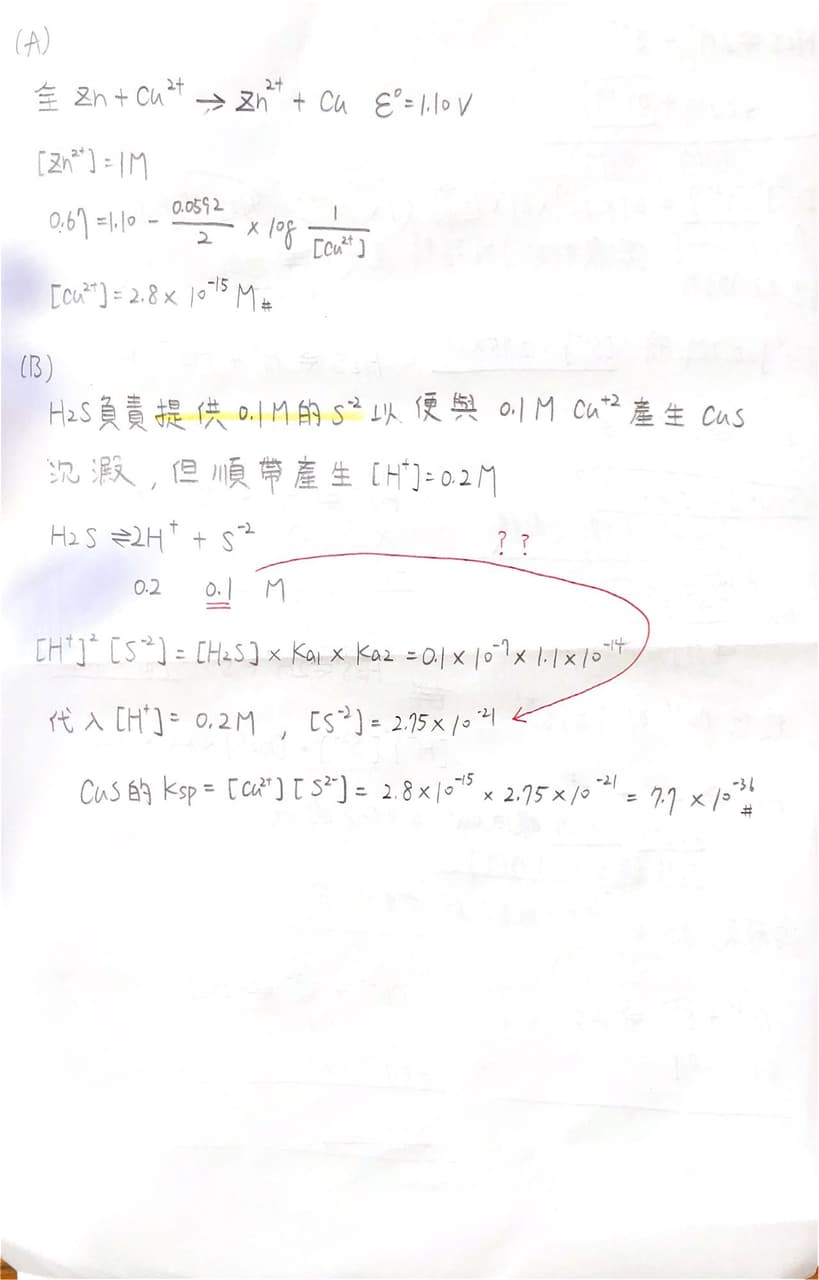 (A)
全 Zn + Cu²⁺ → Zn²⁺ + Cu ε°=1.10V
[Zn²⁺]=1M
0.67=1.10 - 0.0592/2 × log 1/[Cu²⁺]
[Cu²⁺]=2.8×10⁻¹⁵ M#
(B)
H2S負責提供0.1M的S⁻²以便與 0.1M Cu⁺²產生 CuS
沉澱,但順帶產生[H⁺]=0.2M
H2S ⇌2H⁺ + S⁻² ??
0.2 0.1 M
[H⁺]²[S⁻²]=[H2S]×Ka1×Ka2=0.1×10⁻⁷×1.1×10⁻¹⁴
代入[H⁺]=0.2M,[S⁻²]=2.75×10⁻²¹
CuS的 Ksp=[Cu²⁺][S²⁻]=2.8×10⁻¹⁵×2.75×10⁻²¹=7.7×10⁻³⁶#